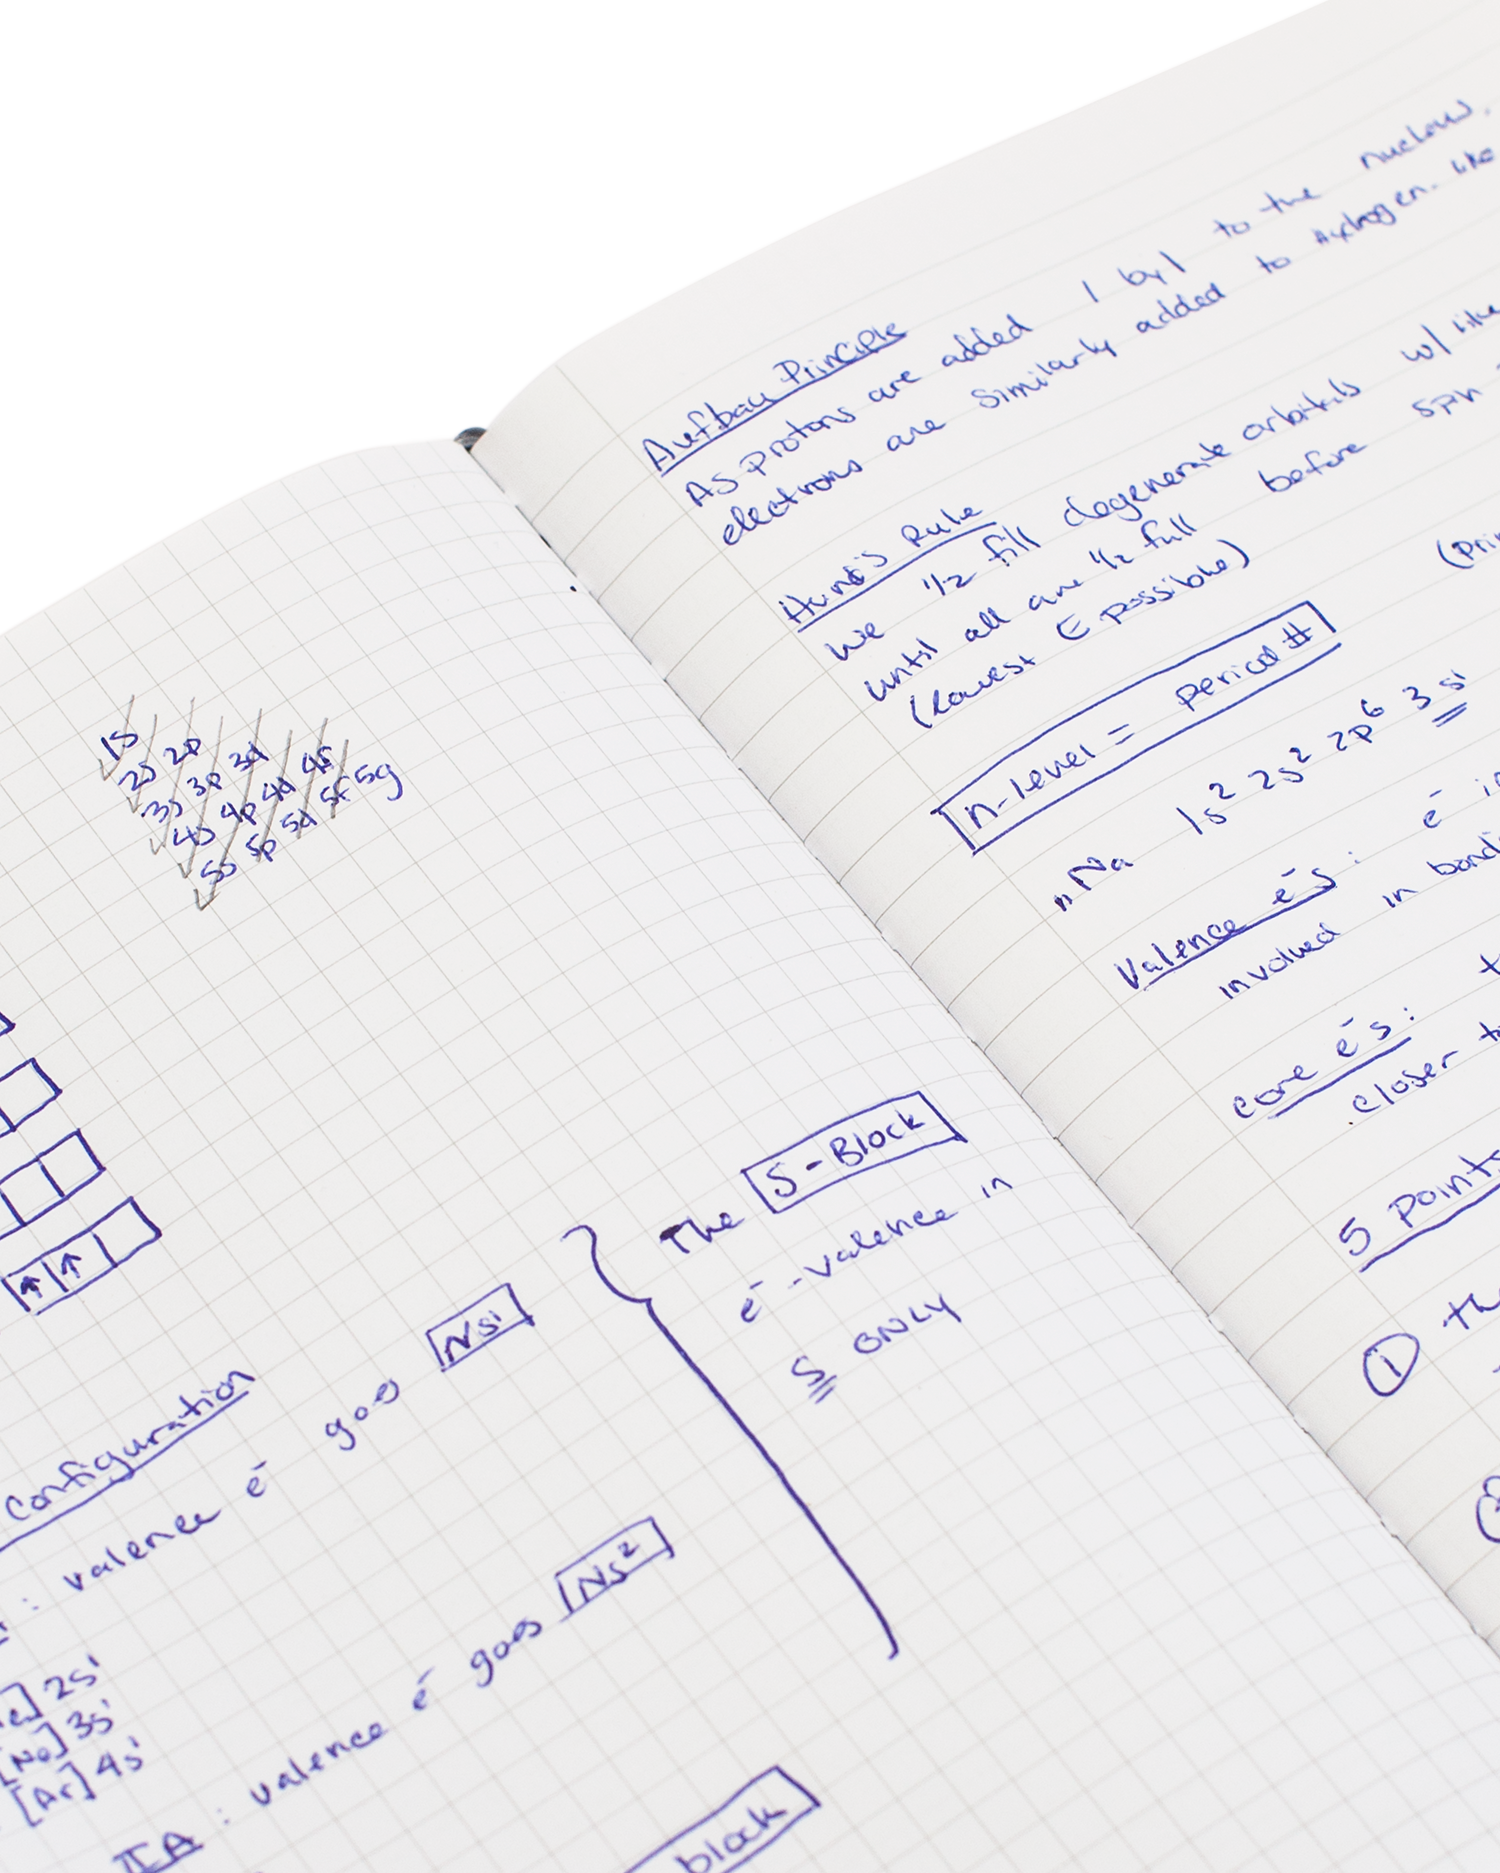 1s
2s 2p
3s 3p 3d
4s 4p 4d 4f
5s 5p 5d 5f 5g
Configuration
: valence é goes Ns¹
] 2s¹
[Ne] 3s¹
[Ar] 4s¹
IIA : valence é goes Ns²
The S-Block
é-valence in
S ONLY
block
Aufbau Principle
As protons are added 1 by 1 to the nucleus,
electrons are similarly added to Hydrogen. like
Hund's Rule
We 1/2 fill degenerate orbitals w/ like
until all are 1/2 full before spin
(lowest E possible)
n-level = period #
₁₁Na 1s² 2s² 2p⁶ 3s¹
Valence é's : é
involved in
core é's :
closer
5 points
①